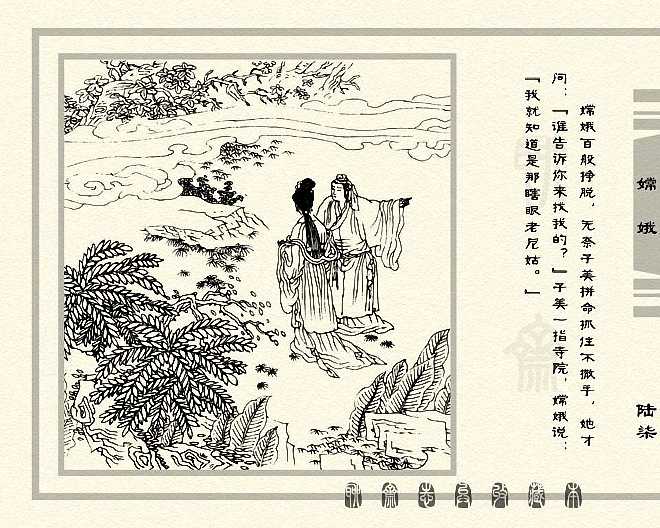 嫦娥百般挣脱，无奈子美拼命抓住不撒手，她才
问：「谁告诉你来找我的？」子美一指寺院，嫦娥说：
「我就知道是那瞎眼老尼姑。」
嫦娥
陆柒